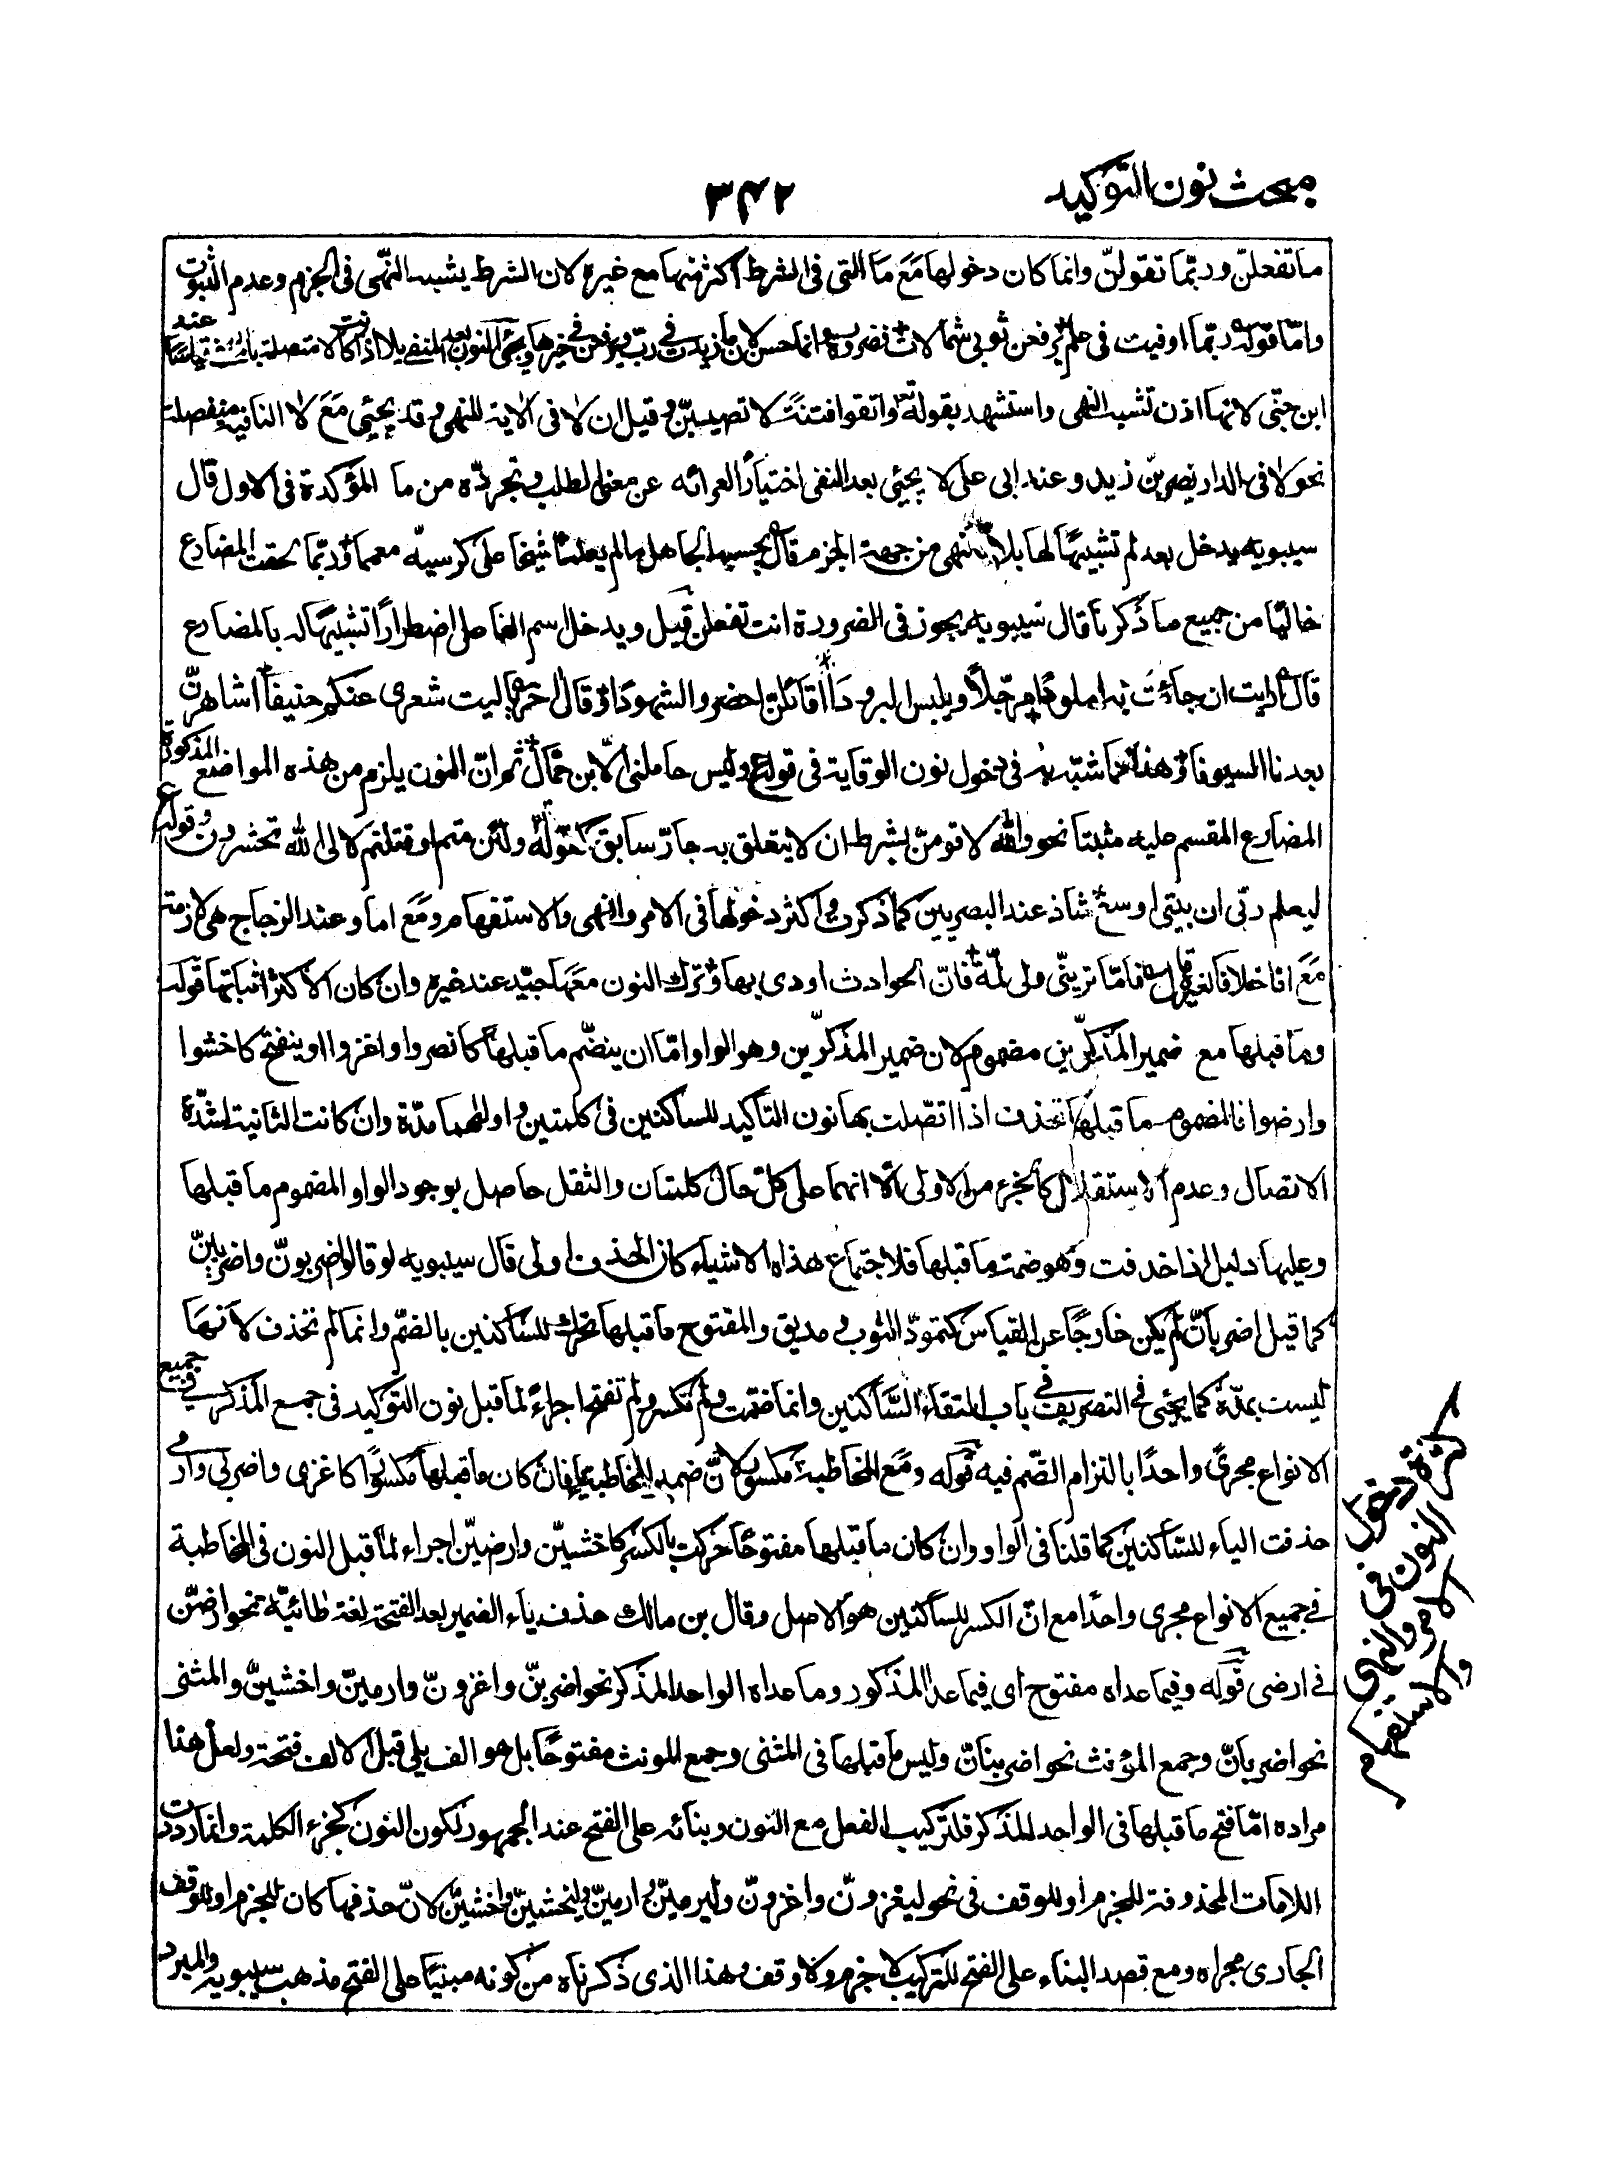 مبحث نون التوكيد
٣٤٢
ما تفعلنّ وربّما تقولنّ وانما كان دخولها مَعَ ما التى فى الشرط اكثر منها مع غيره لان الشرط يشبه النّهى فى الجزم وعدم الثبوت
وامّا قوله ربّما اوفيت فى علم ترفعن ثوبى شمالات فضرورة وانما حسن لان ما زيدت فى ربّ وترفعن فى خبرها ويجئ النون بعد المنفى بلا اذا كانت لا متصلة بالمنفى قياسًا عند
ابن جنّى لانها اذن تشبه النهى واستشهد بقوله تعا واتقوا فتنة لا تصيبنّ وقيل ان لا فى الاية للنهى وقد يجئى مَعَ لا النافية منفصلة
نحو لا فى الدار يضربنّ زيد وعند ابى على لا يجئى بعد النفى اختيارًا لعرائه عن معنى الطلب وتجرّده من ما المؤكدة فى الاول قال
سيبويه يدخل بعد لم تشبيهًا لها بلا النهى من جهة الجزم قال يحسبه الجاهل ما لم يعلما شيخا على كرسيّه معمما وربّما لحقت المضارع
خاليًا من جميع ما ذكرنا قال سيبويه يجوز فى الضرورة انت تفعلن قيل ويدخل اسم الفاعل اضطرارًا تشبيهًا له بالمضارع
قال ارايت ان جاءَت به املودًا مرجّلًا ويلبس البرودا اقائلنّ احضروا الشهودا وقال اخر يا ليت شعرى عنكم حنيفا اشاهرنّ
بعدنا السيوفا وهذا كما شبّه به فى دخول نون الوقاية فى قوله ع وليس حاملنى الّا ابن حمّال ثم انّ النون يلزم من هذه المواضع المذكورة
المضارع المقسم عليه مثبتا نحو والله لاقومنّ بشرط ان لا يتعلق به جارّ سابق كقوله ولئن متم او قتلتم لالى الله تحشرون وقوله ع
ليعلم ربّى ان بيتى اوسع شاذ عند البصريين كما ذكرت واكثر دخولها فى الامر والنهى والاستفهام ومَعَ اما وعند الزجاج هى لازمة
مَعَ امّا خلافا لغيره قال فامّا ترينّى ولى لمّة فانّ الحوادث اودى بها وترك النون معها جيّد عند غيره وان كان الاكثر اثباتها قوله
وما قبلها مع ضمير المذكّرين مضموم لان ضمير المذكّرين وهو الواو امّا ان ينضّم ما قبلها كانصروا واغزوا او ينفتح كاخشوا
وارضوا فالمضموم ما قبلها تحذف اذا اتصّلت بها نون التاكيد للساكنين فى كلمتين واولهما مدّة وان كانت الثانية لشدّة
الاتصال وعدم الاستقلال كالجزء من الاولى الّا انهما على كلّ حال كلمتان والثقل حاصل بوجود الواو المضموم ما قبلها
وعليها دليل اذا حذفت وهو ضمة ما قبلها فلاجتماع هذه الاشياء كان الحذف اولى قال سيبويه لو قالوا اضربونّ واضربينّ
كما قيل اضربانّ لم يكن خارجًا عن القياس كتمودّ الثوب ومديق والمفتوح ما قبلها تحرك للسّاكنين بالضمّ وانما لم تحذف لانها
ليست بمدّة كما يجئى فى التصريف فى باب التقاء السّاكنين وانما ضمّت ولم تكسر ولم تفتح اجراءً لما قبل نون التوكيد فى جمع المذكر فى جميع
الانواع مجرىً واحدًا بالتزام الضّم فيه قوله ومَع المخاطبة مكسور لانّ ضمير المخاطبة ياء فان كان ما قبلها مكسورًا كاغزى واضربى وارمى
حذفت الياء للسّاكنين كما قلنا فى الواو وان كان ما قبلها مفتوحًا حركت بالكسر كاخشينّ وارضينّ اجراء لما قبل النون فى المخاطبة
فى جميع الانواع مجرى واحدًا مع انّ الكسر للساكنين هو الاصل وقال بن مالك حذف ياء الضمير بعد الفتحة لغة طائيّة نحو ارضنّ
فى ارضى قوله وفيما عداه مفتوح اى فيما عدا المذكور وما عداه الواحد المذكر نحو اضربنّ واغزونّ وارمينّ واخشينّ والمثنى
نحو اضربانّ وجمع المؤنث نحو اضربنانّ وليس ما قبلها فى المثنى وجمع المونث مفتوحًا بل هو الف يلى قبل الالف فتحة ولعل هذا
مراده امّا فتح ما قبلها فى الواحد المذكر فلتركيب الفعل مع النون وبنائه على الفتح عند الجمهور لكون النون كجزء الكلمة وانما ردّت
اللامات المحذوفة للجزم او للوقف فى نحو ليغزونّ واغزونّ وليرمينّ وارمينّ وليخشينّ واخشينّ لانّ حذفها كان للجزم او للوقف
الجارى مجراه ومع قصد البناء على الفتح للتركيب لا جزم ولا وقف وهذا الذى ذكرناه من كونه مبنيًا على الفتح مذهب سيبويه والمبرد
كثرة دخول
النون فى
الامر والنهى
والاستفهام